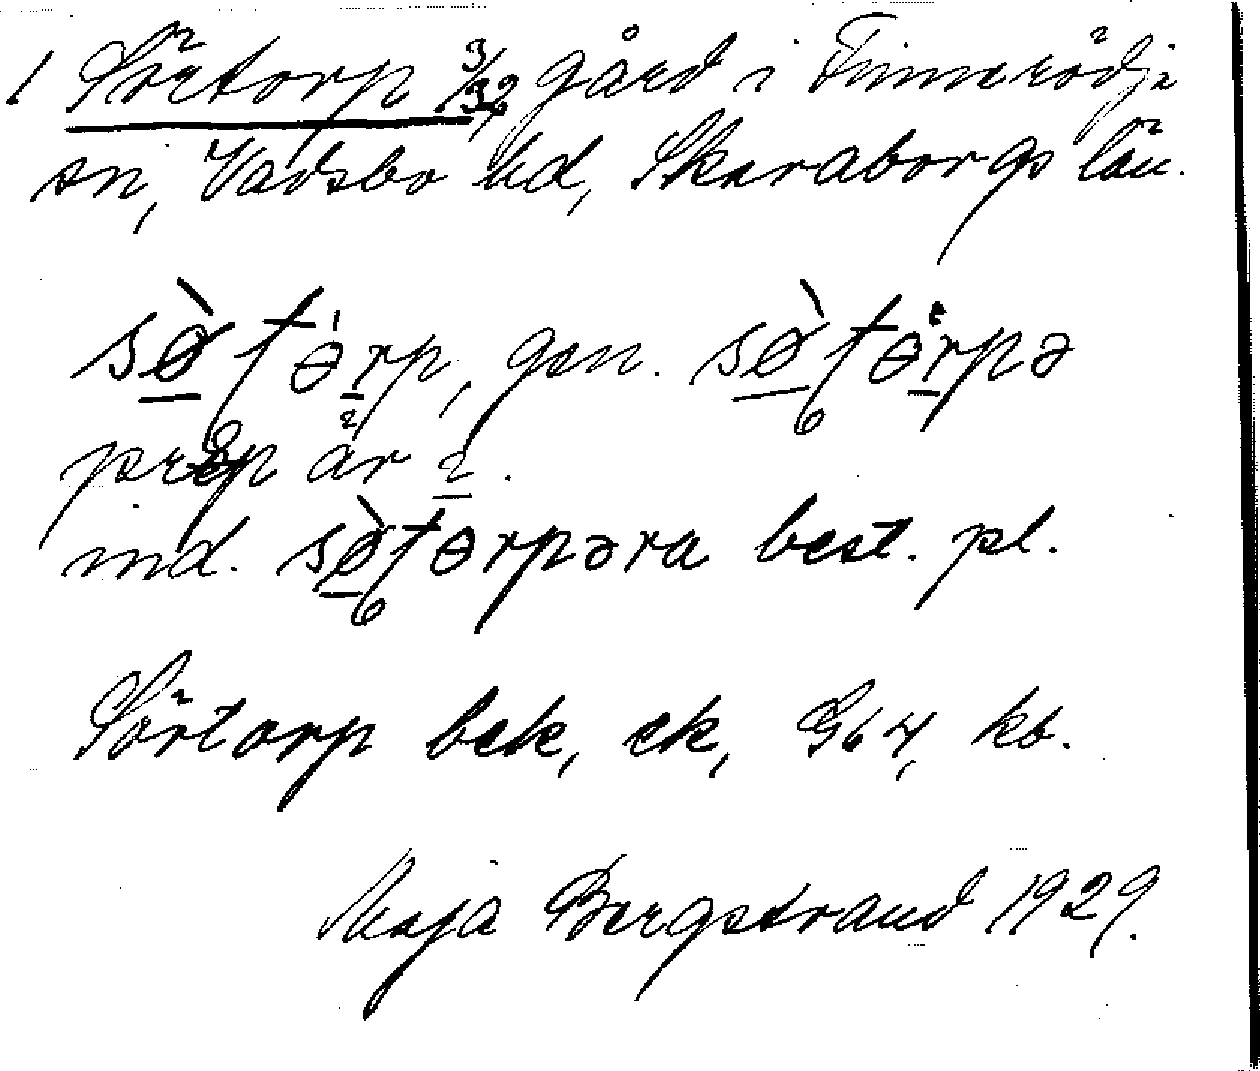 1 Sörtorp 3/32 gård i Finnerödja
sn, Vadsbo hd, Skaraborgs län.
sø̀ʈɵ̀rp, gen. sø̀ʈɵrpə
prep är i.
ind. sø̀ʈɵrpəra best. pl.
Sörtorp bek, ek, Gb 4, kb.
Maja Bergstrand 1929.